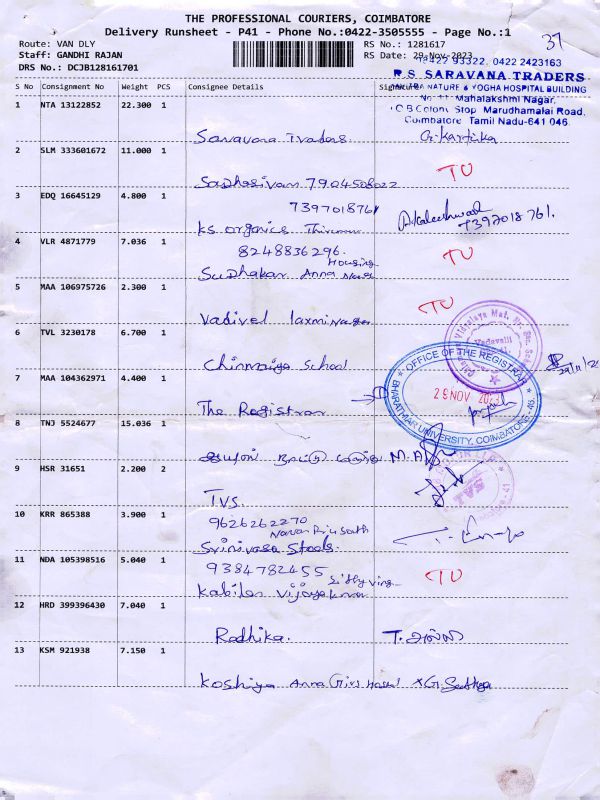 THE PROFESSIONAL COURIERS, COIMBATORE
Delivery Runsheet - P41 - Phone No.:0422-3505555 - Page No.:1
37
Route: VAN DLY
Staff: GANDHI RAJAN
DRS No.: DCJB128161701
RS No.: 1281617
RS Date: 29-Nov-2023
93322, 0422 2423163
R.S. SARAVANA TRADERS
NATURE & YOGHA HOSPITAL BUILDING
No. 11 Mahalakshmi Nagar,
Stop Marudhamalai Road,
Coimbatore Tamil Nadu-641 046.
S No Consignment No Weight PCS Consignee Details
1 NTA 13122852 22.300 1
Saravana Traders G. Karthika
2 SLM 333601672 11.000 1
Sadhasivam 7904508022 TU
3 EDQ 16645129 4.800 1
7397018761
KS. organics 7397018761.
4 VLR 4871779 7.036 1
8248836296. TU
Housing
Sudhakar Anna
5 MAA 106975726 2.300 1
Vadivel laxmi Nagar TU
6 TVL 3230178 6.700 1
Chinmaya School
Vadavalli
7 MAA 104362971 4.400 1
The Registrar
OFFICE OF THE REGISTRAR
29 NOV 2023
BHARATHIAR UNIVERSITY, COIMBATORE - 46.
8 TNJ 5524677 15.036 1
9 HSR 31651 2.200 2
TVS.
10 KRR 865388 3.900 1
9626262270
Srinivasa Steels.
11 NDA 105398516 5.040 1
9384782455 TU
Kabilan Vijayakumar
12 HRD 399396430 7.040 1
Radhika.
13 KSM 921938 7.150 1
Koshiya Anna Girls Hostel